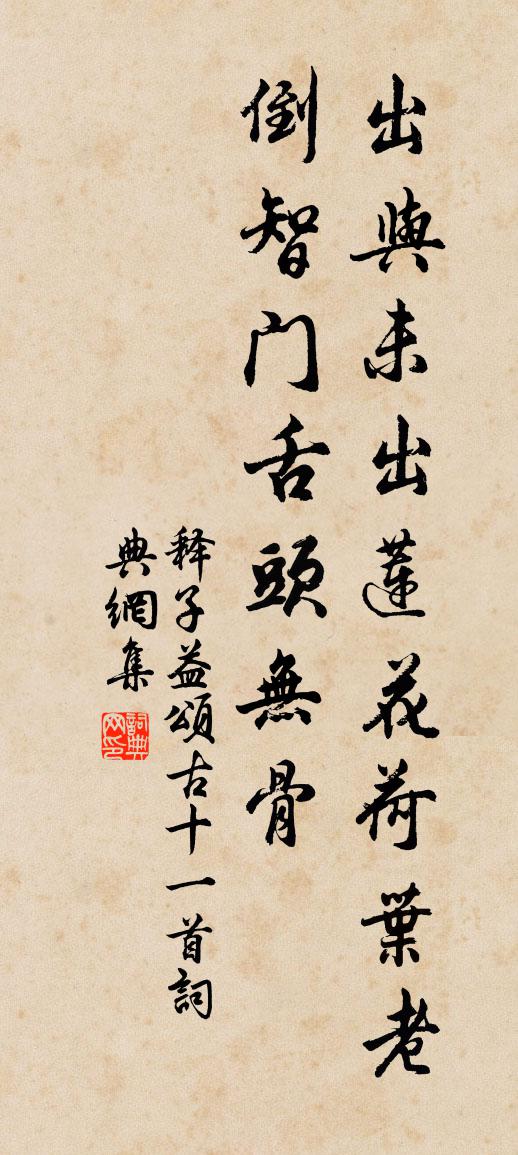 出與未出蓮花荷葉老
倒智門舌頭無骨
释子益頌古十一首詞
典網集
詞典
网印